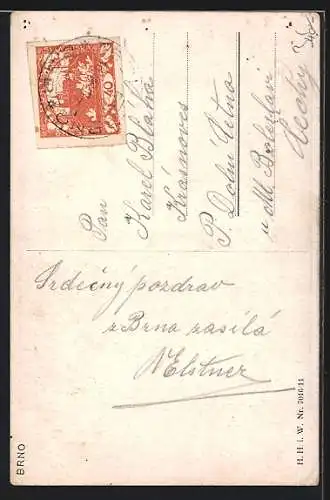 Pan
Karel Bláha
Krásnoves
P. Dolní Cetno
u Ml. Boleslavi
Čechy
Srdečný pozdrav
z Brna zasílá
Elstner
BRNO
H. H. i. W. Nr. 7016/11